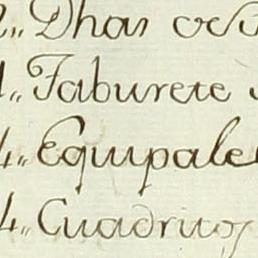 2,, Dhas
1,, Taburete
4,, Equipale
4,, Cuadritos